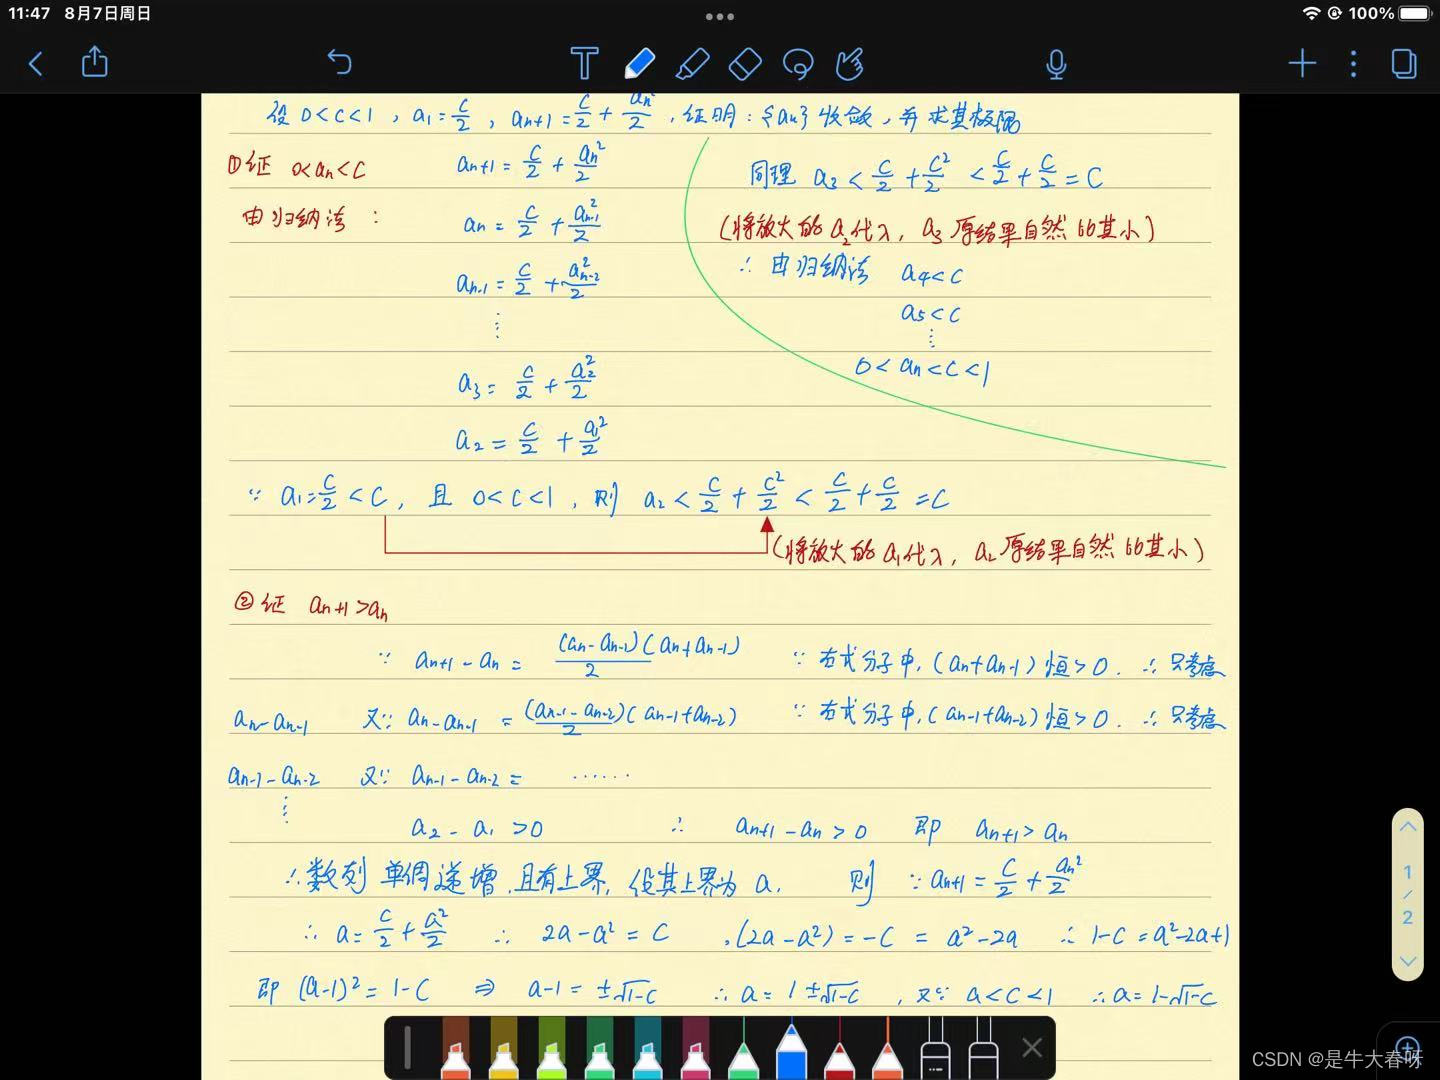 11:47 8月7日周日
100%
设 0<c<1, a₁=c/2, aₙ₊₁=c/2+aₙ²/2, 证明:{aₙ}收敛,并求其极限
①证 0<aₙ<C
aₙ₊₁=c/2+aₙ²/2
由归纳法:
aₙ=c/2+aₙ₋₁²/2
aₙ₋₁=c/2+aₙ₋₂²/2
⋮
a₃=c/2+a₂²/2
a₂=c/2+a₁²/2
同理 a₃<c/2+c²/2<c/2+c/2=C
(将放大的a₂代入, a₃原结果自然比其小)
∴由归纳法 a₄<c
a₅<c
⋮
0<aₙ<c<1
∵ a₁=c/2<C, 且 0<c<1, 则 a₂<c/2+c²/2<c/2+c/2=C
(将放大的a₁代入, a₂原结果自然比其小)
②证 aₙ₊₁>aₙ
∵ aₙ₊₁-aₙ=(aₙ-aₙ₋₁)(aₙ+aₙ₋₁)/2 ∵右式分子中,(aₙ+aₙ₋₁)恒>0. ∴只考虑
aₙ-aₙ₋₁ 又∵ aₙ-aₙ₋₁=(aₙ₋₁-aₙ₋₂)(aₙ₋₁+aₙ₋₂)/2 ∵右式分子中,(aₙ₋₁+aₙ₋₂)恒>0. ∴只考虑
aₙ₋₁-aₙ₋₂ 又∵ aₙ₋₁-aₙ₋₂= ······
⋮
a₂-a₁>0 ∴ aₙ₊₁-aₙ>0 即 aₙ₊₁>aₙ
∴数列单调递增,且有上界,设其上界为a, 则 ∵aₙ₊₁=c/2+aₙ²/2
∴ a=c/2+a²/2 ∴ 2a-a²=C ,(2a-a²)=-C=a²-2a ∴ 1-C=a²-2a+1
即 (a-1)²=1-C ⇒ a-1=±√1-C ∴ a=1±√1-C , 又∵ a<C<1 ∴a=1-√1-C
1
/
2
CSDN @是牛大春呀